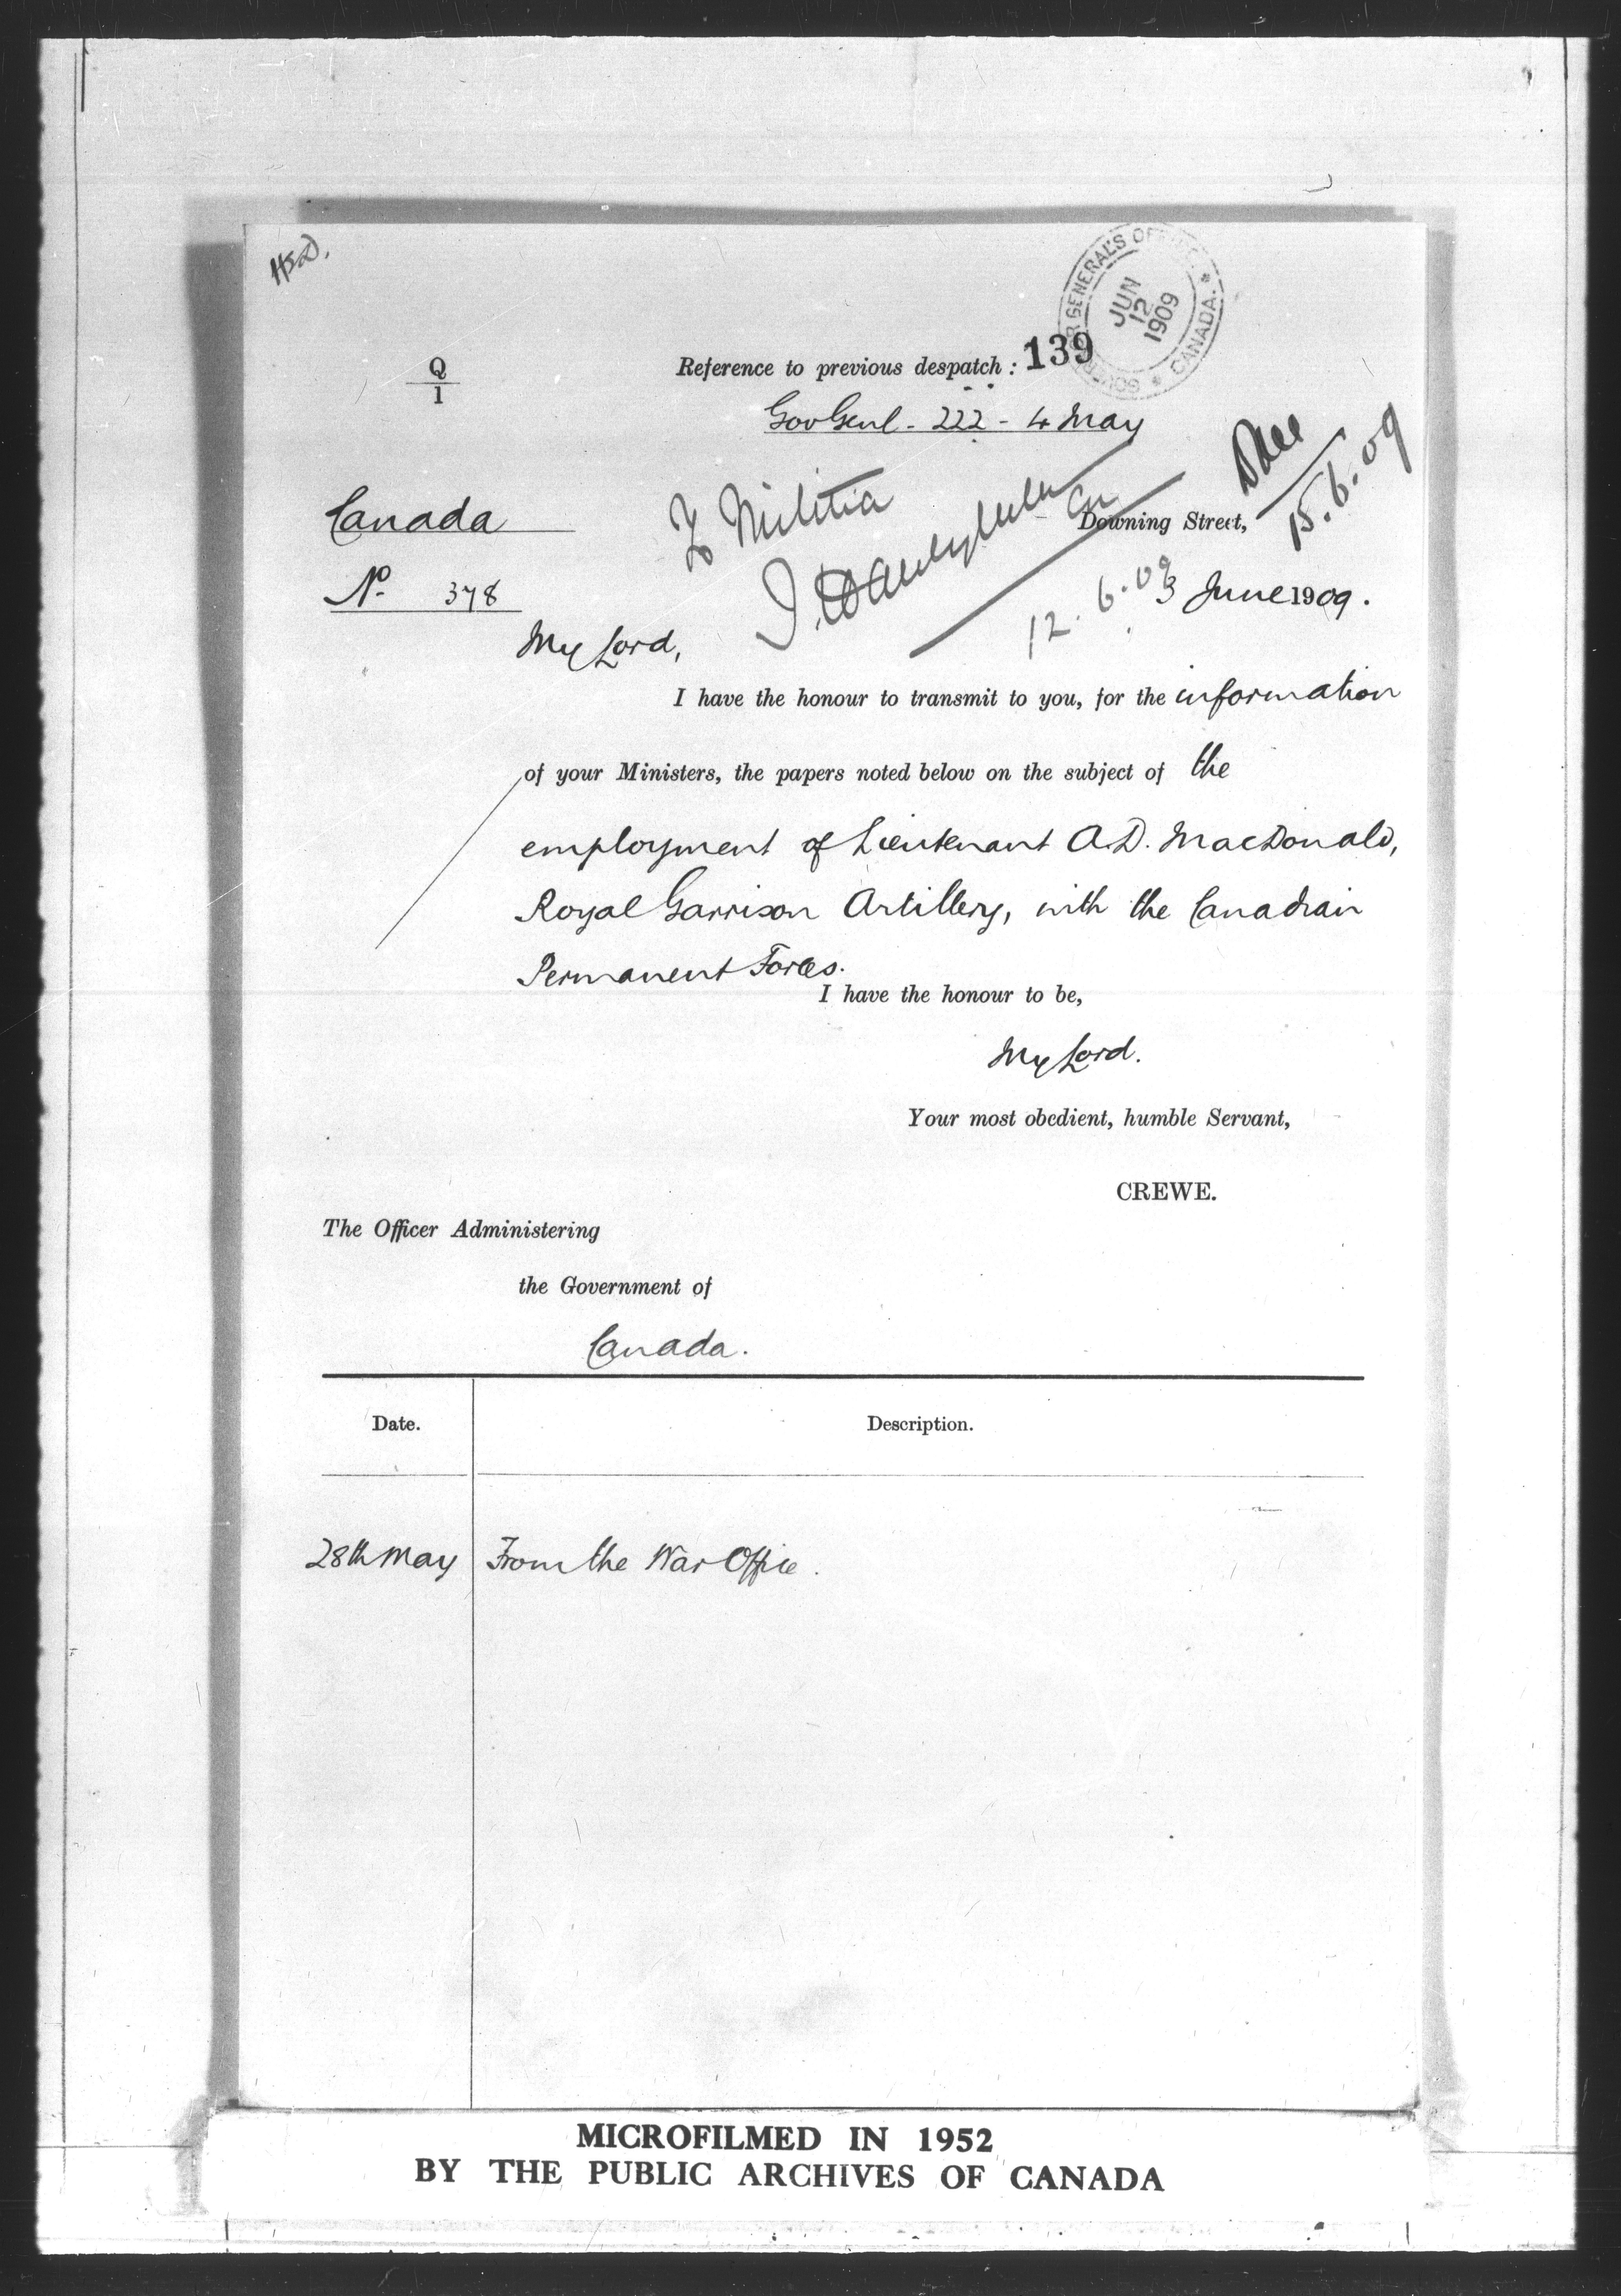 Q
1
GOVERNOR GENERAL'S OFFICE * CANADA. *
JUN
12
1909
Reference to previous despatch : 139
Gov Genl - 222 - 4 May
15.6.09
Canada
To Militia
Downing Street,
No. 378
12.6.09
3 June 1909.
My Lord,
I have the honour to transmit to you, for the information
of your Ministers, the papers noted below on the subject of the
employment of Lieutenant A.D. MacDonald,
Royal Garrison Artillery, with the Canadian
Permanent Forces.
I have the honour to be,
My Lord.
Your most obedient, humble Servant,
CREWE.
The Officer Administering
the Government of
Canada.
Date. Description.
28th May From the War Office.
MICROFILMED IN 1952
BY THE PUBLIC ARCHIVES OF CANADA